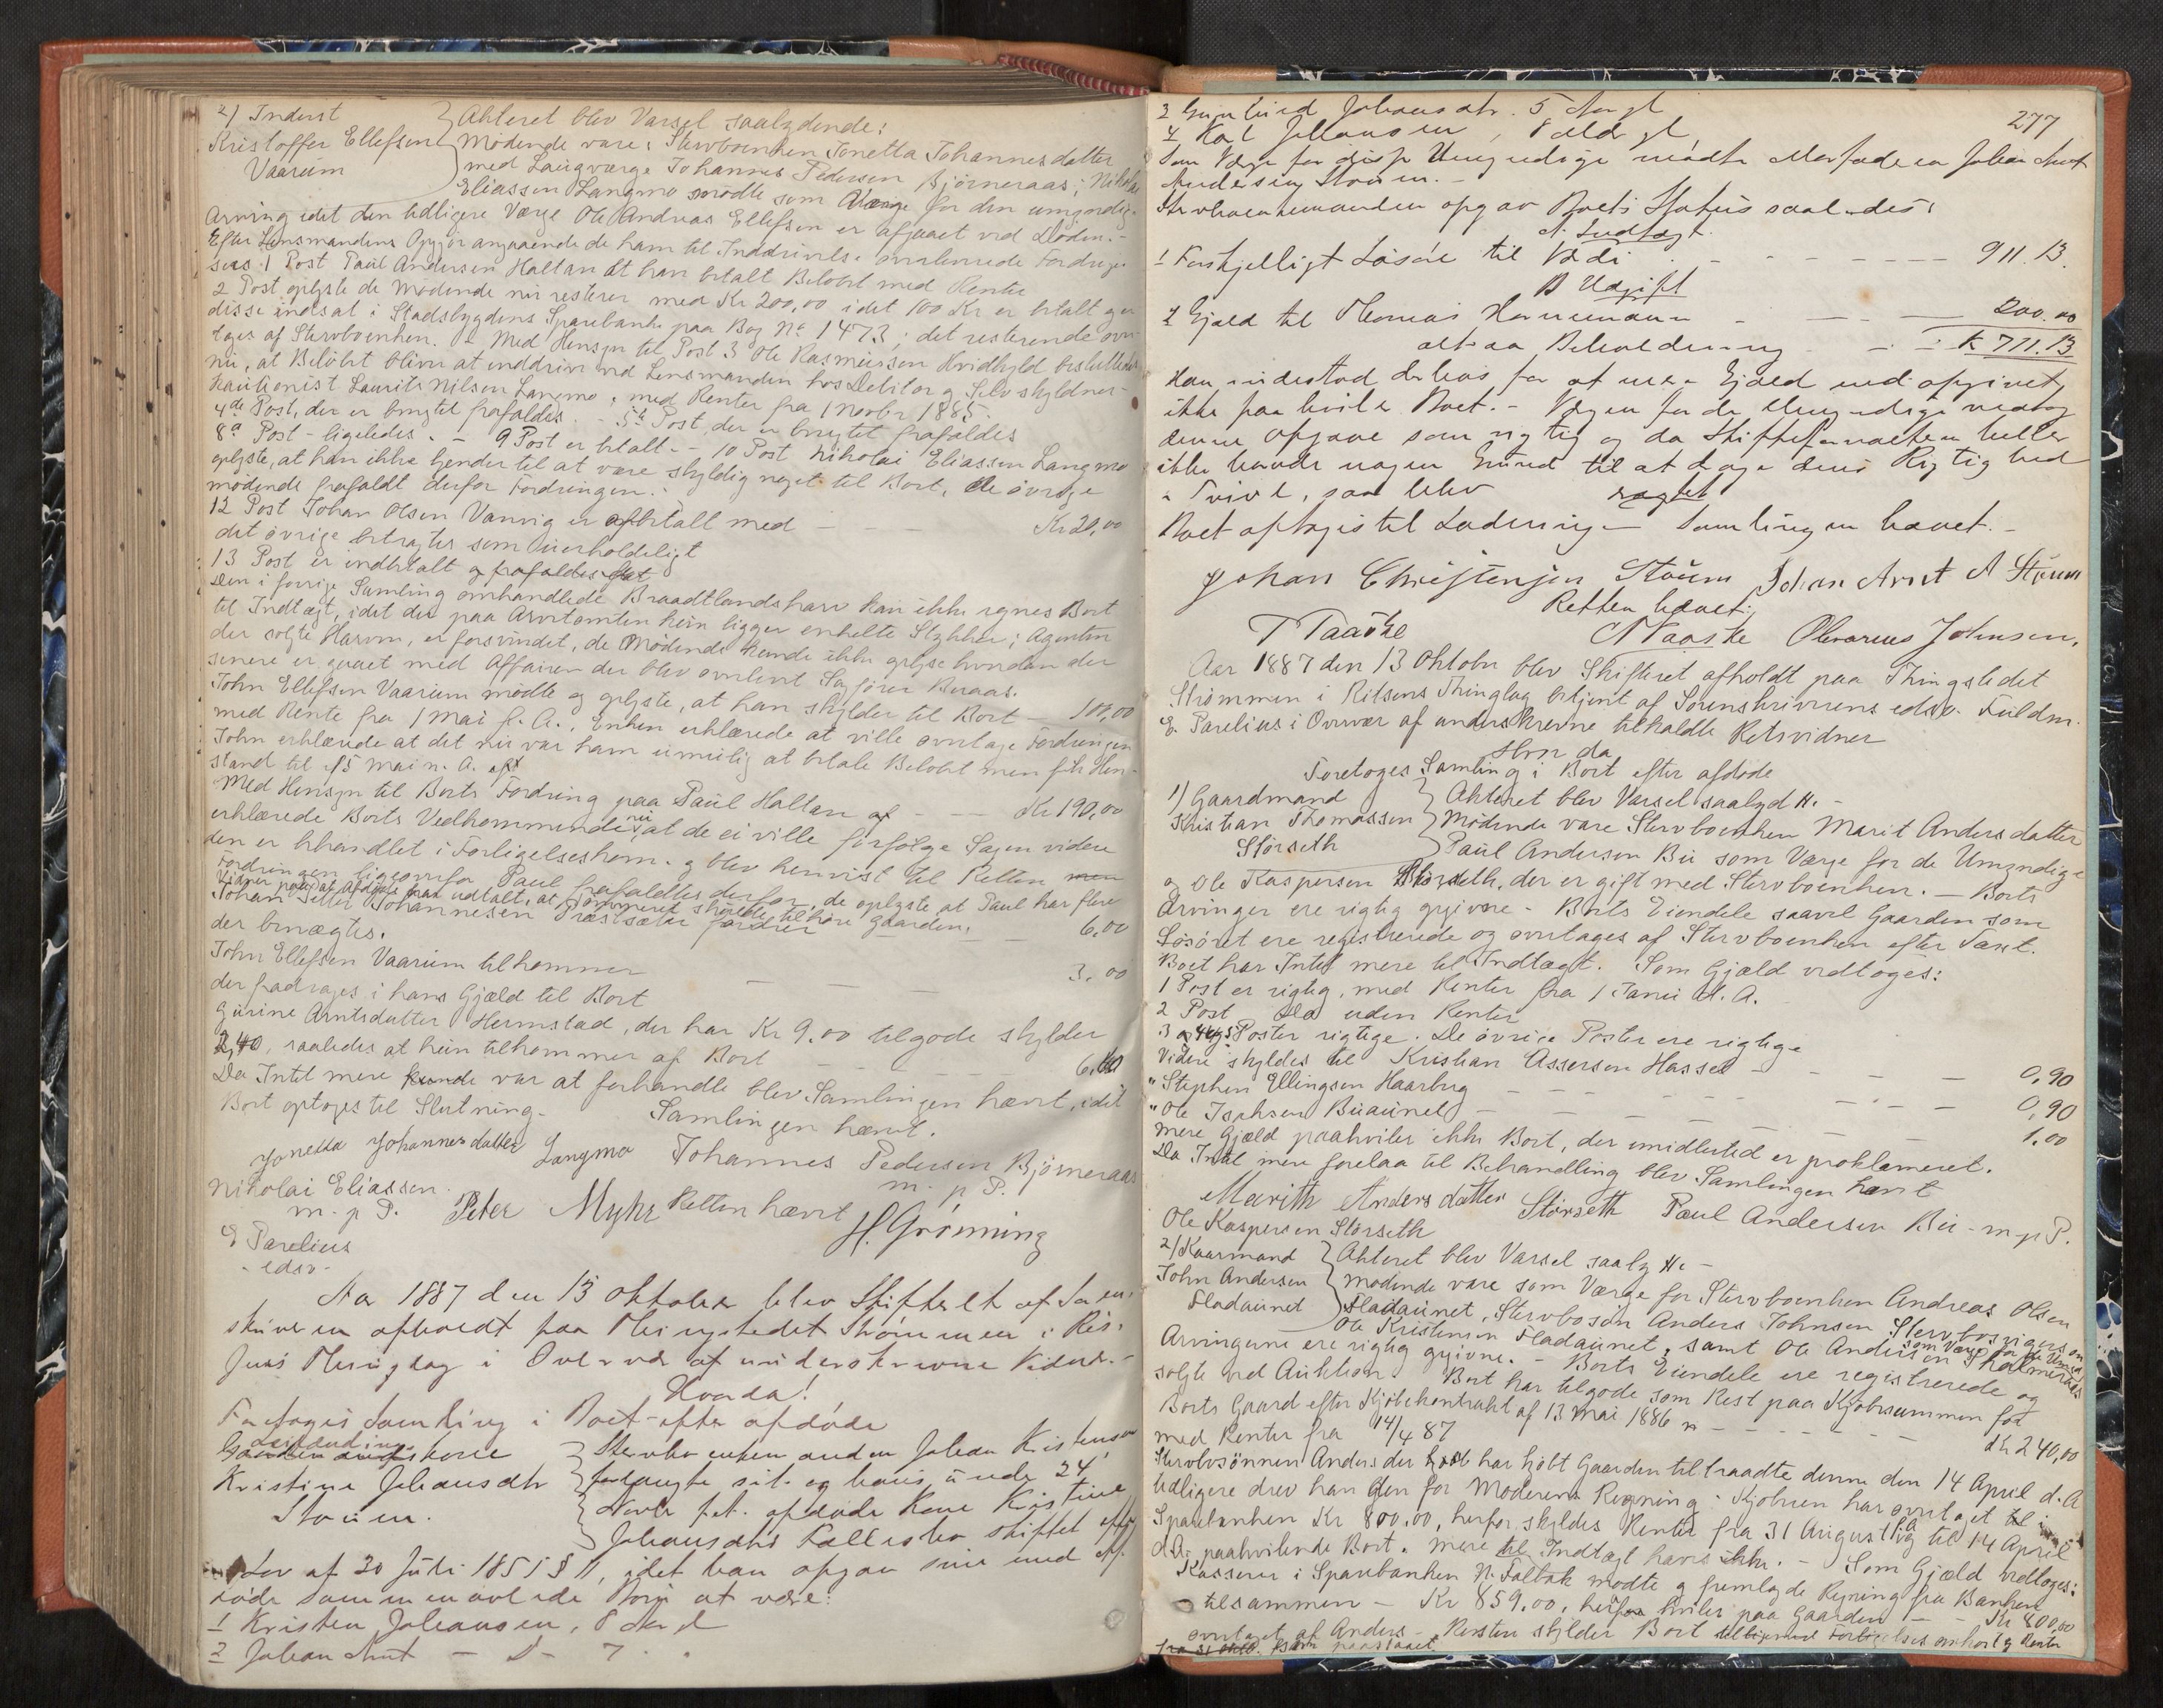 2) Inderst
Kristoffer Ellefsen
Vaarum
Akteret blev Varsel saalydende:
Mødende vare: Stervboenken Jonetta Johannesdatter
med Laugværge Johannes Pedersen Bjørneraas; Nikolai
Eliassen Langmo mødte som Værge for den umyndige
Arving idet den tidligere Værge Ole Andreas Ellefsen er afgaaet ved Døden. -
Efter Lensmandens Opgjør angaaende de ham til Inddrivelse overleverede Fordringer
sees 1 Post Paul Andersen Haltan at han betalt Beløbet med Rente
2 Post oplyste de Mødende nu resterer med Kr 200,00 idet 100 Kr er betalt og er
disse indsat i Stadsbygdens Sparebank paa Bog No 1473; det resterende over-
tages af Stervboenken. Med Hensyn til Post 3 Ole Rasmussen Hvidkyld besluttedes
nu, at Beløbet bliver at inddrive ved Lensmanden hos Debitor og Selvskyldner-
kautionist Laurits Nilsen Langmo, med Renter fra 1 Novbr 1885.
4de Post, der er benegtet frafaldes. - 5te Post, der er benegtet frafaldes
8de Post - ligeledes. - 9 Post er betalt. - 10 Post Nikolai Eliassen Langmo
oplyste, at han ikke kjender til at være skyldig noget til Boet, de øvrige
mødende frafaldt derfor Fordringen.
12 Post Johan Olsen Vanvig er afbetalt med - - - Kr 20,00
det øvrige betragtes som uerholdeligt
13 Post er indbetalt og frafaldes
Den i forrige Samling omhandlede Braadtlandsharv kan ikke regnes Boet
til Indtægt, idet der paa Arvetomten kun ligger enkelte Stykker; Agenten
der solgte Harven, er forsvindet, de Mødende kunde ikke oplyse hvordan det
senere er gaaet med Affairen der blev overlevert Sagfører Beraas.
John Ellefsen Vaarum mødte og oplyste, at han skylder til Boet - 104,00
med Rente fra 1 Mai f. A., Enken erklærede at ville overtage Fordringen
John erklærede at det nu var ham umulig at betale Beløbet men fik Hen-
stand til 15 Mai n. A.
Med Hensyn til Boets Fordring paa Paul Haltan af - - Kr 190,00
erklærede Boets Vedkommende nu, at de ei ville forfølge Sagen videre
den er behandlet i Forligelseskom. og blev henvist til Retten men
Fordringen ligeoverfor Paul frafaldtes derfor, de oplyste at Paul har flere
Vidner paa at Afdøde har udtalt, at Tømmeret skulde tilhøre Gaarden.
Johan Petter Johannesen Præstsæter fordrer - 6,00
der benægtes.
John Ellefsen Vaarum tilkommer - - - 3,00
der fradrages i hans Gjæld til Boet
Gurine Arntsdatter Hermstad, der har Kr 9.00 tilgode skylder
2,40, saaledes at hun tilkommer af Boet - - - 6,60
Da Intet mere kunde var at forhandle blev Samlingen hævet, idet
Boet optoges til Slutning. Samlingen hævet.
Jonetta Johannesdatter Langmo Johannes Pedersen Bjørneraas
Nikolai Eliassen m. p P.
m. p P. Peter Myhr Retten hævet H. Grønning
E Parelius
- edsv -
Aar 1887 den 13 Oktober blev Skifteret af Soren-
skriveren afholdt paa Thingstedet Strømmen i Ris-
sens Thinglag i Overvær af underskrevne Vidner. -
Hvorda!
Foretoges Samling i Boet efter afdøde
Kristine Johansdtr
Støum.
Stervboenkemanden Johan Kristensen
forlangte sit og hans under 24
Novbr f.A. afdøde Kone Kristine
Johansdtrs Fællesbo skiftet efter
Lov af 30 Juli 1851 § 11, idet han opgav sine med Af-
døde sammenavlede Børn at være:
1 Kristen Johansen, 8 Aar gl
2 Johan Arnt - D - 7.
277
3 Gunhild Johansdtr. 5 Aar gl
4 Karl Johansen,
Som Værge for disse Umyndige mødte Morfaderen Johan Arnt
Andersen Støum. -
Stervboenkemanden opgav Boets Status saaledes:
A. Indtægt.
1 Forskjelligt Løsøre til Værdi - - - 911.13
B Udgift
1 Gjæld til Thomas Hannemann - - 200.00
altsaa Beholdning - - K 711.13
Han indestod derhos for at mere Gjæld end opgivet,
ikke paahviler Boet. - Værgen for de Umyndige vedtog
denne Opgave som rigtig og da Skifteforvalteren heller
ikke havde nogen Grund til at drage dens Rigtighed
i Tvivl, saa blev
Boet optages til Slutning - Samlingen hævet. -
Johan Christensen Støum Johan Arnt A Støum
Retten hævet:
T Taaske N Kaaske Olevarius Johnsen.
Aar 1887 den 13 Oktobr blev Skifteret afholdt paa Thingstedet
Strømmen i Ritsens Thinglag betjent af Sorenskriverens edsv. Fuldm.
E. Parelius i Overvær af underskrevne tilkaldte Retsvidner
Hvor da
Foretoges Samling i Boet efter afdøde
1) Gaardmand
Kristian Thomassen
Størseth
Akteret blev Varsel saalyd H. -
Mødende vare Stervboenken Marit Andersdatter
Paul Andersen Bu som Værge for de Umyndige
og Ole Kaspersen Størseth, der er gift med Stervboenken. - Boets
Arvinger ere rigtig opgivne - Boets Eiendele saavel Gaarden som
Løsøret ere registrerede og overtages af Stervboenken efter Taxt.
Boet har Intet mere til Indtægt. Som Gjæld vedtoges:
1 Post er rigtig, med Renter fra 1 Januar d. A.
2 Post do uden Renter
3 4 og 5 Poster rigtige. De øvrige Poster ere rigtige
Videre skyldes til Kristian Assersen Hassel - - - 0,90
" Stephen Ellingsen Haarberg - - - 0,90
" Ole Isaksen Buaunet - - - 1.00
mere Gjæld paahviler ikke Boet, der imidlertid er proklameret.
Da Intet mere forelaa til Behandling blev Samlingen hævet
Marith Andersdatter Størseth Paul Andersen Bu - m. p P.
Ole Kaspersen Størseth
2) Kaarmand
John Andersen
Fladaunet
Akteret blev Varsel saaly H. -
Mødende vare som Værge for Stervboenken Andreas Olsen
Fladaunet, Stervbosøn Anders Johnsen Stervbosvigersøn
Ole Kristensen Fladaunet, samt Ole Andersen som Værge for de Umyn
Arvingerne ere rigtig opgivne. - Boets Eiendele ere registrerede og
solgte ved Auktion. Boet har tilgode som Rest paa Kjøbesummen for
Boets Gaard efter Kjøbekontrakt af 13 Mai 1886 - - - Kr 240,00
med Renter fra 14/4 87
Stervbosønnen Anders der har kjøbt Gaarden tiltraadte denne den 14 April d. A
tidligere drev han den for Moderens Regning. Kjøberen har overtaget
Sparebanken Kr 800.00, herfor skyldes Renter fra 31 August til 14 April
d. A. paahvilende Boet. mere til Indtægt haves ikke. - Som Gjæld vedtoges:
Kasserer i Sparebanken N. Falbak mødte og fremlagde Regning fra Banken
tilsammen - Kr 859.00, heraf hviler paa Gaarden - - Kr 800,00
overtaget af Anders - Resten skylder Boet